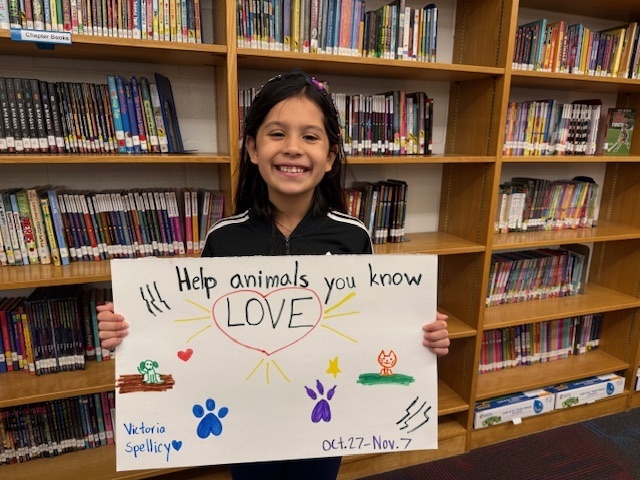 Chapter Books
Help animals you know
LOVE
Victoria
Spellicy
Oct.27-Nov.7